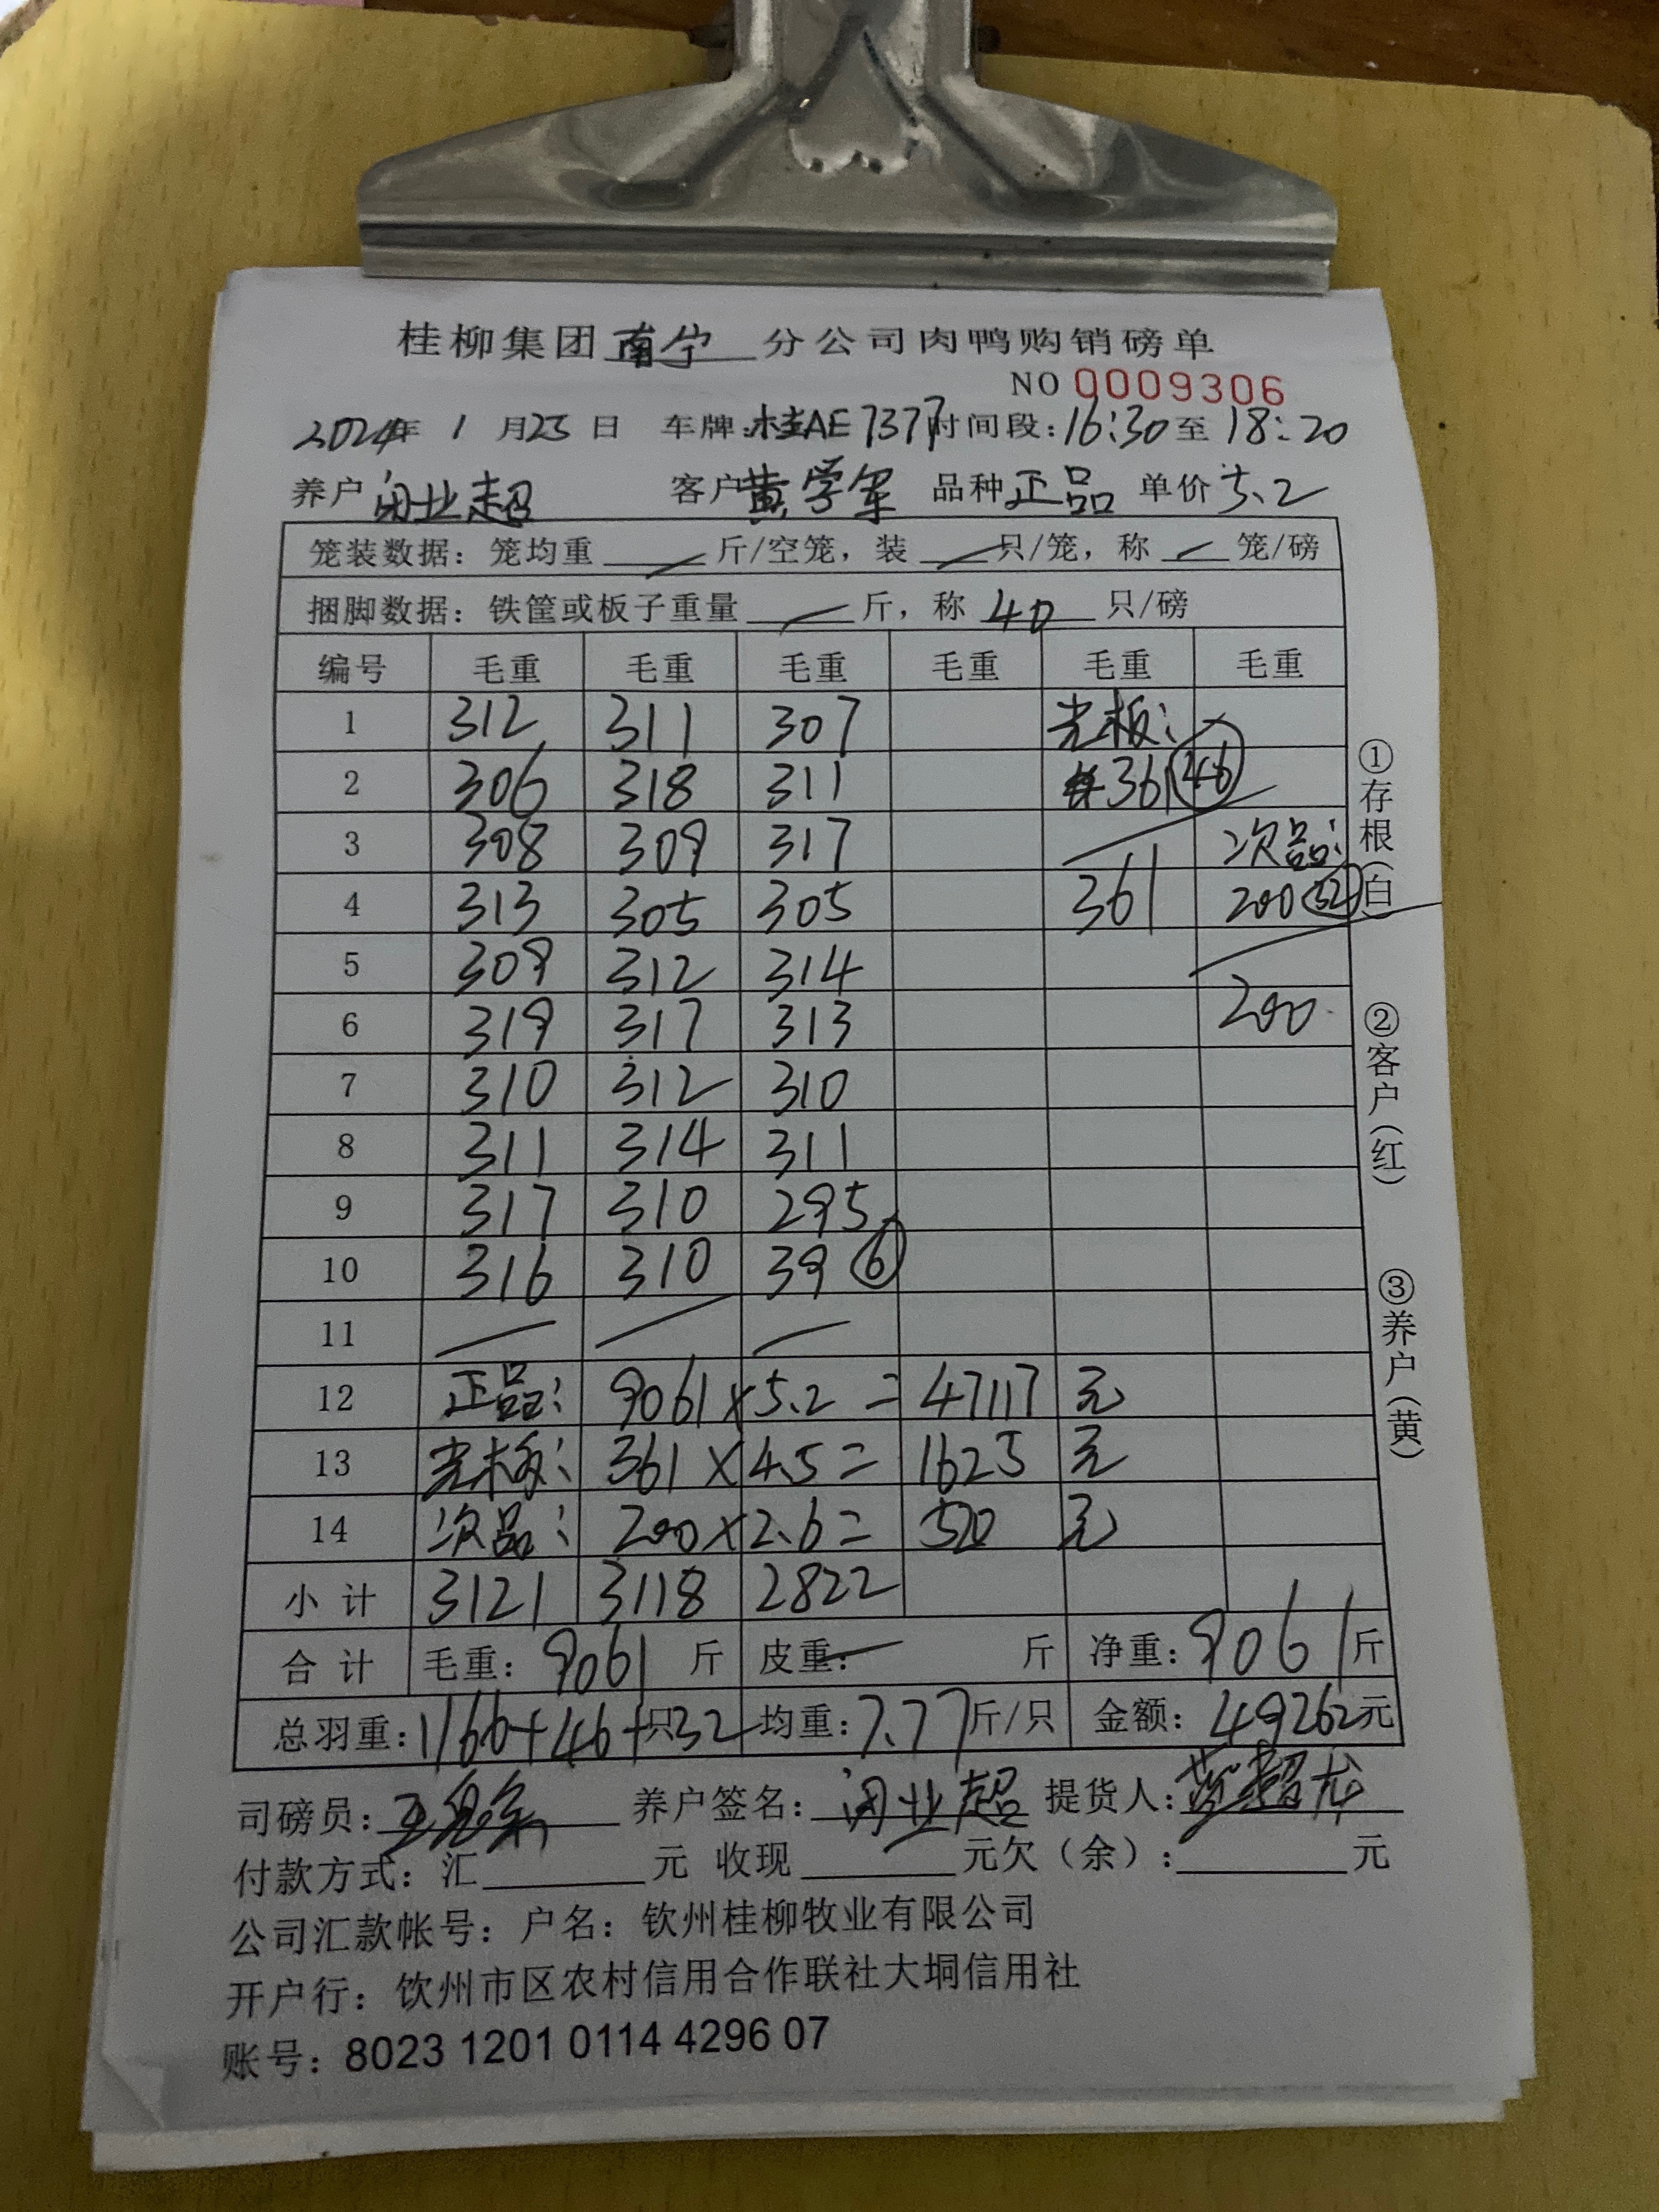 桂柳集团南宁分公司肉鸭购销磅单
NO 0009306
2024年 1 月23日 车牌:桂AE7377 时间段:16:30至18:20
养户 闭业超 客户 黄学军 品种 正品 单价 5.2
笼装数据: 笼均重 — 斤/空笼, 装 — 只/笼, 称 — 笼/磅
捆脚数据: 铁筐或板子重量 — 斤, 称 40 只/磅
编号 毛重 毛重 毛重 毛重 毛重 毛重
1 312 311 307 光板:
2 306 318 311 361 46
3 308 309 317 次品:
4 313 305 305 361 200 32
5 309 312 314
6 319 317 313 200
7 310 312 310
8 311 314 311
9 317 310 295
10 316 310 39 6
11 — — —
12 正品: 9061×5.2 = 47117 元
13 光板: 361×4.5= 1625 元
14 次品: 200×2.6= 520 元
小计 3121 3118 2822
合计 毛重: 9061 斤 皮重: — 斤 净重: 9061 斤
总羽重: 1166+46+32 只 均重: 7.77 斤/只 金额: 49262元
司磅员: 养户签名: 闭业超 提货人:
付款方式: 汇 元 收现 元欠(余): 元
公司汇款帐号: 户名: 钦州桂柳牧业有限公司
开户行: 钦州市区农村信用合作联社大垌信用社
账号: 8023 1201 0114 4296 07
①存根(白)
②客户(红)
③养户(黄)